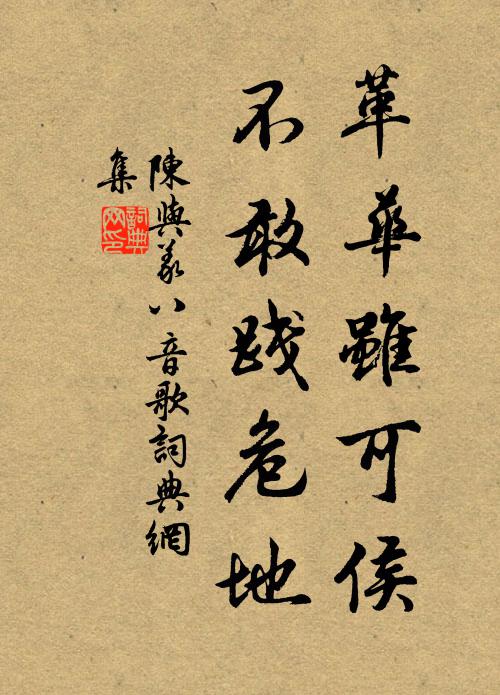 革華雖可侯
不敢践危地
陳與義八音歌詞典網
集
詞典
网印